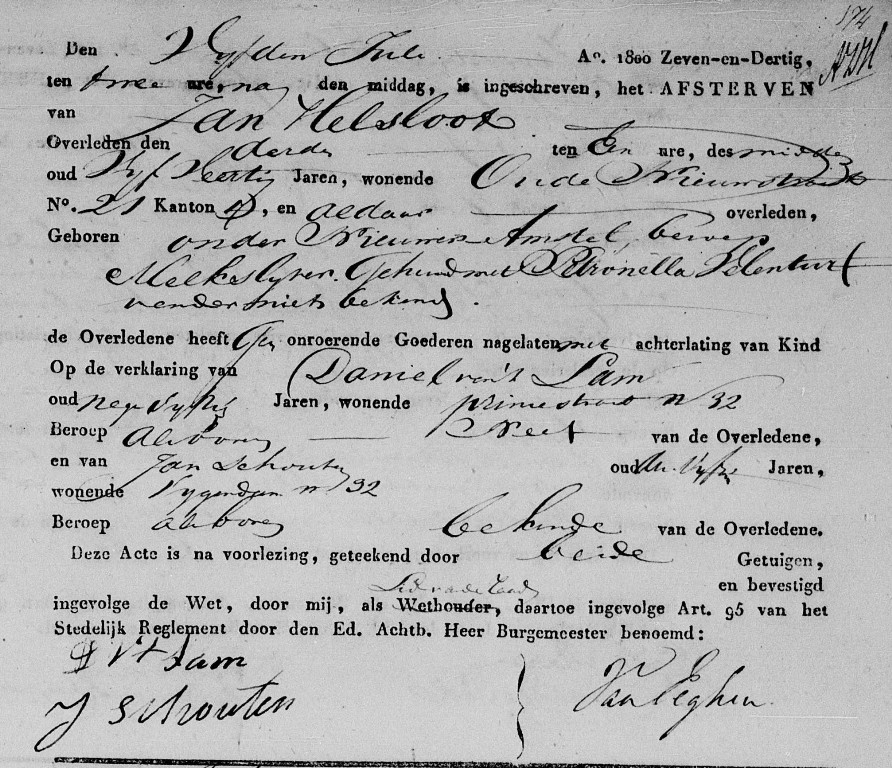 174
Den Vyfden Juli Ao. 1800 Zeven-en-Dertig,
ten twee ure, na den middag, is ingeschreven, het AFSTERVEN
van Jan Helsloot
Overleden den derde ten Een ure, des middag
oud Vyf Veertig Jaren, wonende Oude Nieuwstraat
No. 21 Kanton 4, en aldaar overleden,
Geboren onder Nieuwer Amstel, beroep
Melkslyter. Gehuwd met Petronella
verder niets bekend.
de Overledene heeft Geen onroerende Goederen nagelaten, met achterlating van Kind
Op de verklaring van Daniel van't Lam
oud Nege Vyftig Jaren, wonende prinsestraat n 32
Beroep als boven Neef van de Overledene,
en van Jan Schouten oud Vyftig Jaren,
wonende Vygendam n 32
Beroep als boven bekende van de Overledene.
Deze Acte is na voorlezing, geteekend door beide Getuigen,
en bevestigd
Lid van de Raad
ingevolge de Wet, door mij, als Wethouder, daartoe ingevolge Art. 95 van het
Stedelijk Reglement door den Ed. Achtb. Heer Burgemeester benoemd:
D V't Lam
J Schouten
Van Eghen